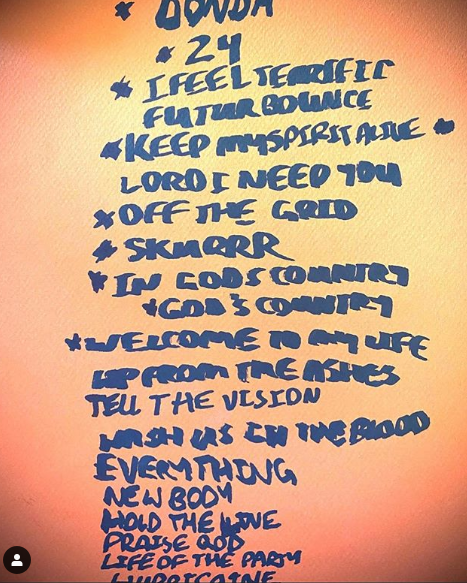 * DONDA
* 24
* I FEEL TERRIFIC
FUTUR BOUNCE
* KEEP MY SPIRIT ALIVE *
LORD I NEED YOU
* OFF THE GRID
* SKURRR
* IN GODS COUNTRY
* GOD'S COUNTRY
* WELCOME TO MY LIFE
UP FROM THE ASHES
TELL THE VISION
WASH US IN THE BLOOD
EVERYTHING
NEW BODY
HOLD THE LINE
PRAISE GOD
LIFE OF THE PARTY
HURRICAINE